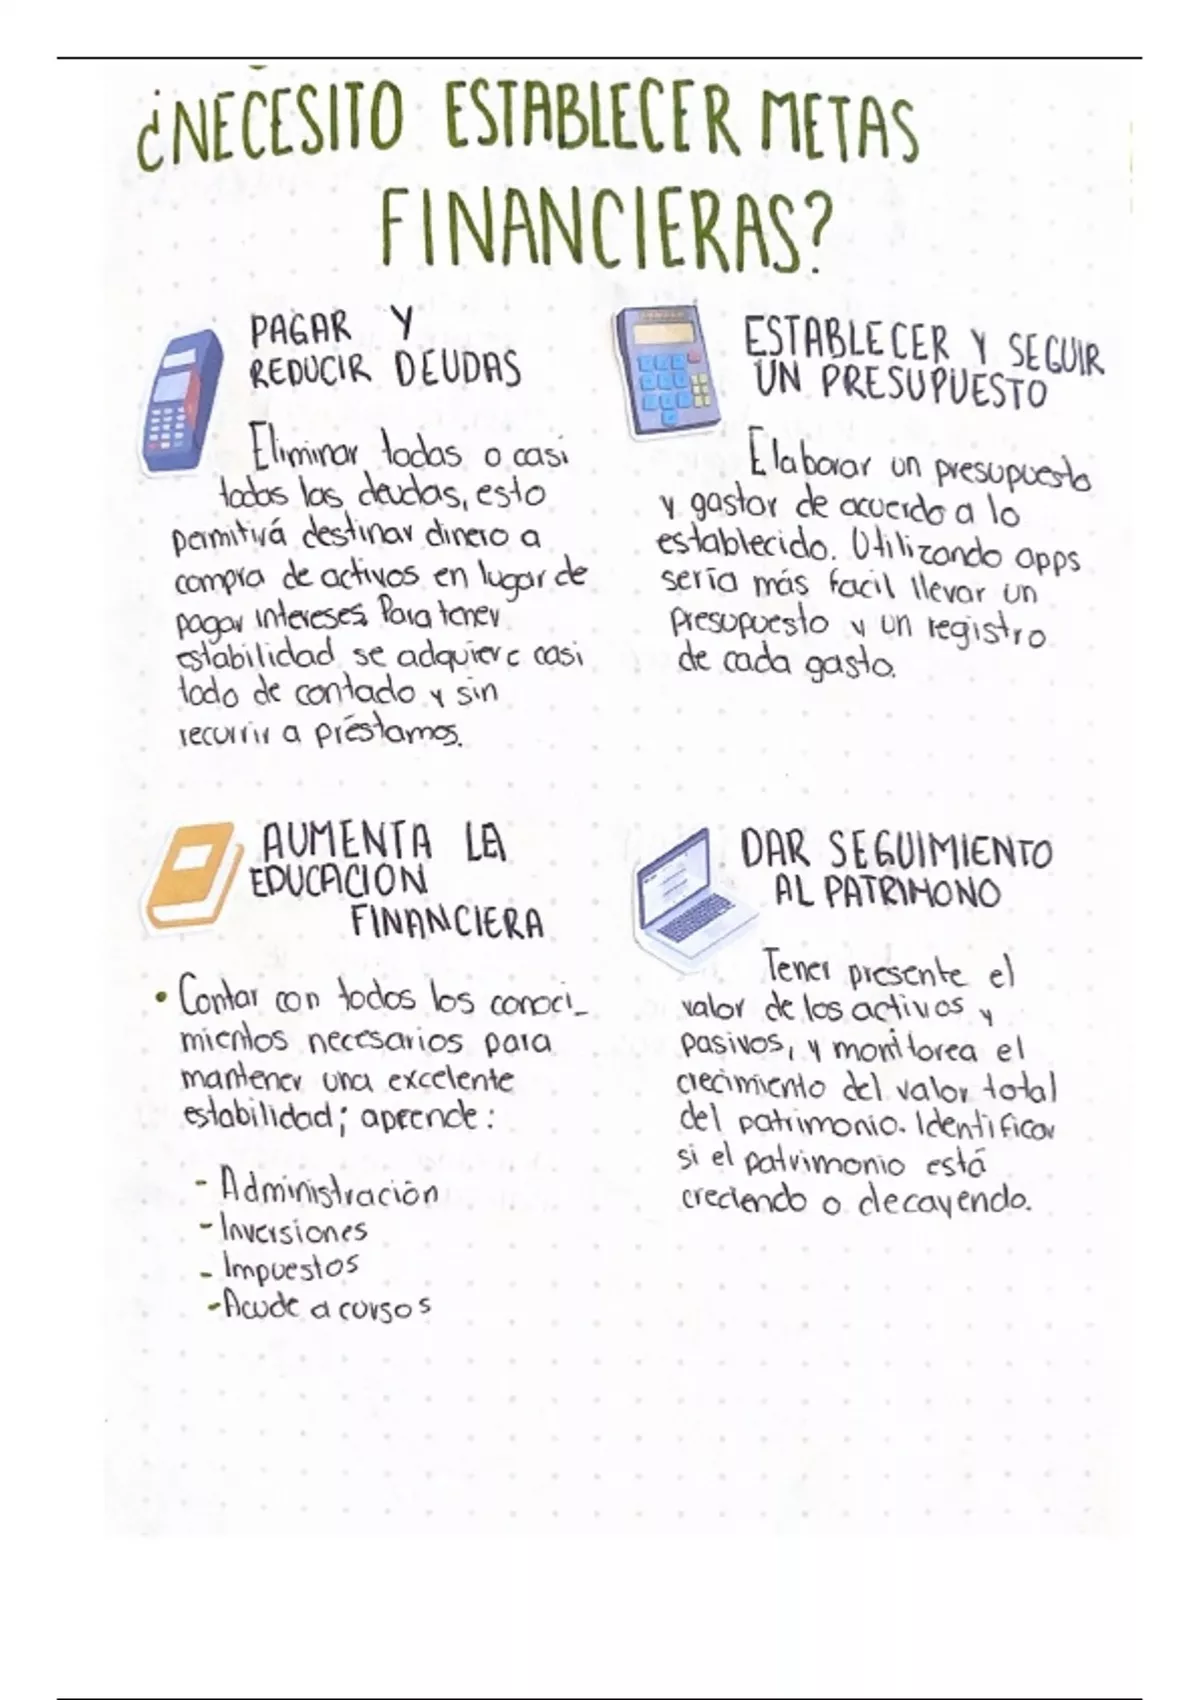 ¿NECESITO ESTABLECER METAS
FINANCIERAS?
PAGAR Y
REDUCIR DEUDAS
Eliminar todas o casi
todas las deudas, esto
permitirá destinar dinero a
compra de activos en lugar de
pagar intereses. Para tener
estabilidad se adquiere casi
todo de contado y sin
recurrir a préstamos.
ESTABLECER Y SEGUIR
UN PRESUPUESTO
Elaborar un presupuesto
y gastar de acuerdo a lo
establecido. Utilizando apps
sería más facil llevar un
presupuesto y un registro
de cada gasto.
AUMENTA LA
EDUCACION
FINANCIERA
• Contar con todos los conoci_
mientos necesarios para
mantener una excelente
estabilidad; aprende:
- Administración
- Inversiones
- Impuestos
- Acude a cursos
DAR SEGUIMIENTO
AL PATRIMONO
Tener presente el
valor de los activos y
pasivos, y monitorea el
crecimiento del valor total
del patrimonio. Identificar
si el patrimonio está
creciendo o decayendo.